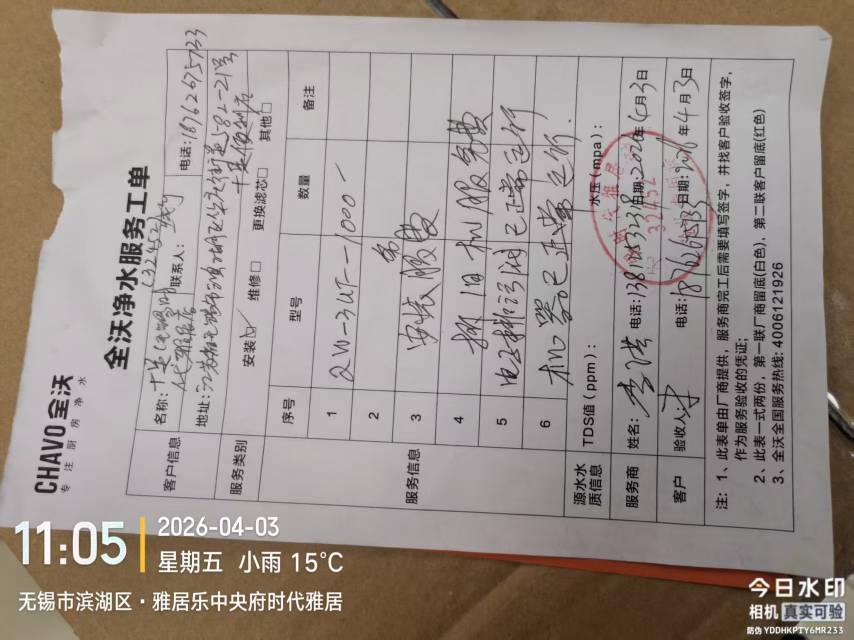 CHAVO 全沃
专注厨房净水
全沃净水服务工单
客户信息 名称: (32452) 联系人: 电话: 18762675733
地址: 582-21号
服务类别 安装☑ 维修□ 更换滤芯□ 其他□
服务信息 序号 型号 数量 备注
1 QW-3UF-1000
2
3 安装服务费
4 拆旧机服务费
5 电子排污阀已正常运行
6 机器已正常运行.
源水水质信息 TDS值 (ppm): 水压 (mpa):
服务商 姓名: 电话: 日期: 2026年4月3日
客户 验收人: 电话: 日期: 2026年4月3日
注: 1、此表单由厂商提供,服务商完工后需要填写签字,并找客户验收签字,
作为服务验收的凭证;
2、此表一式两份,第一联厂商留底(白色),第二联客户留底(红色)
3、全沃全国服务热线: 4006121926
32452
11:05
2026-04-03
星期五 小雨 15°C
无锡市滨湖区·雅居乐中央府时代雅居
今日水印
相机 真实可验
防伪 YDDHKPTY6MR233